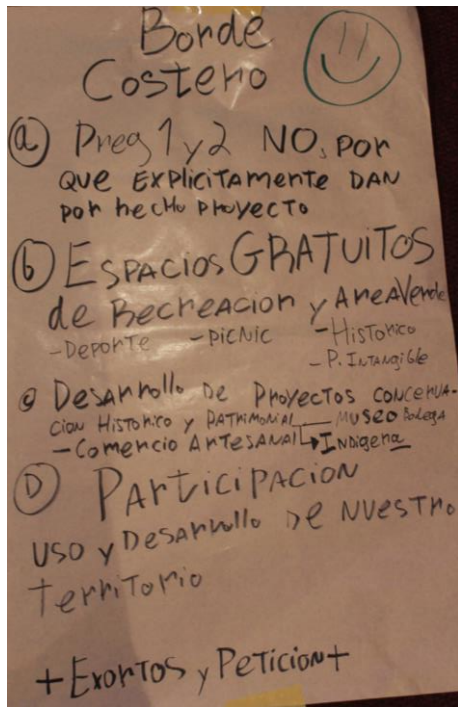 Borde
Costero
a Preg 1 y 2 NO, por
que explicitamente dan
por hecho proyecto
b Espacios GRATUITOS
de Recreacion y Area Verde
- Deporte - Picnic - Historico
- P. Intangible
c Desarrollo de Proyectos concerva-
cion Historico y Patrimonial — Museo Bodega
- Comercio Artesanal → Indigena
D Participacion
uso y Desarrollo de nuestro
territorio
+ Exortos y Peticion +